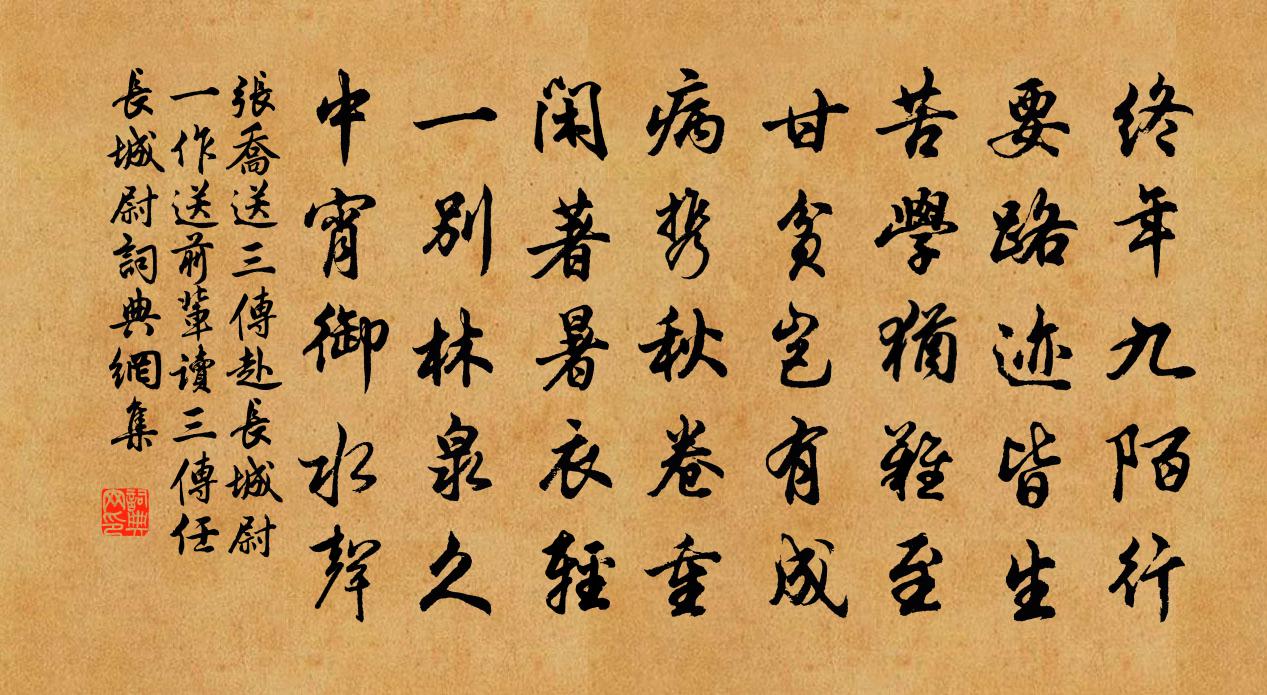 終年九陌行
要路迹皆生
苦學猶難至
甘貧豈有成
病携秋卷重
閑著暑衣輕
一別林泉久
中宵御水聲
張喬送三傳赴長城尉
一作送前輩讀三傳任
長城尉詞典網集
詞典
网印